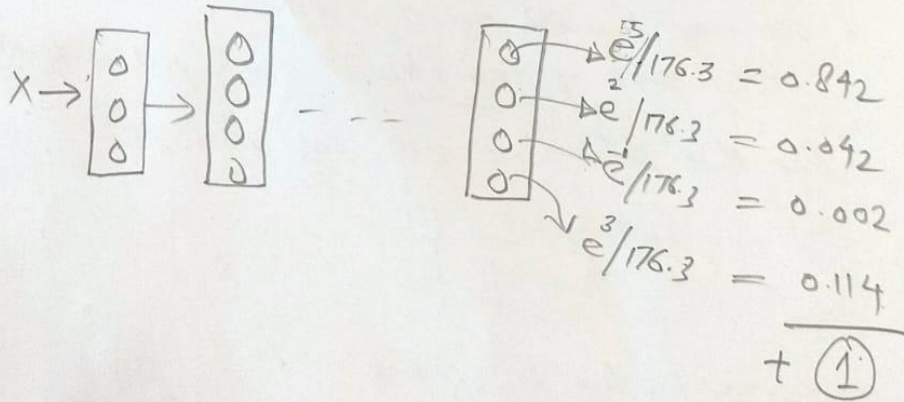 X →
e⁵/176.3 = 0.842
e²/176.3 = 0.042
e⁻¹/176.3 = 0.002
e³/176.3 = 0.114
+ 1